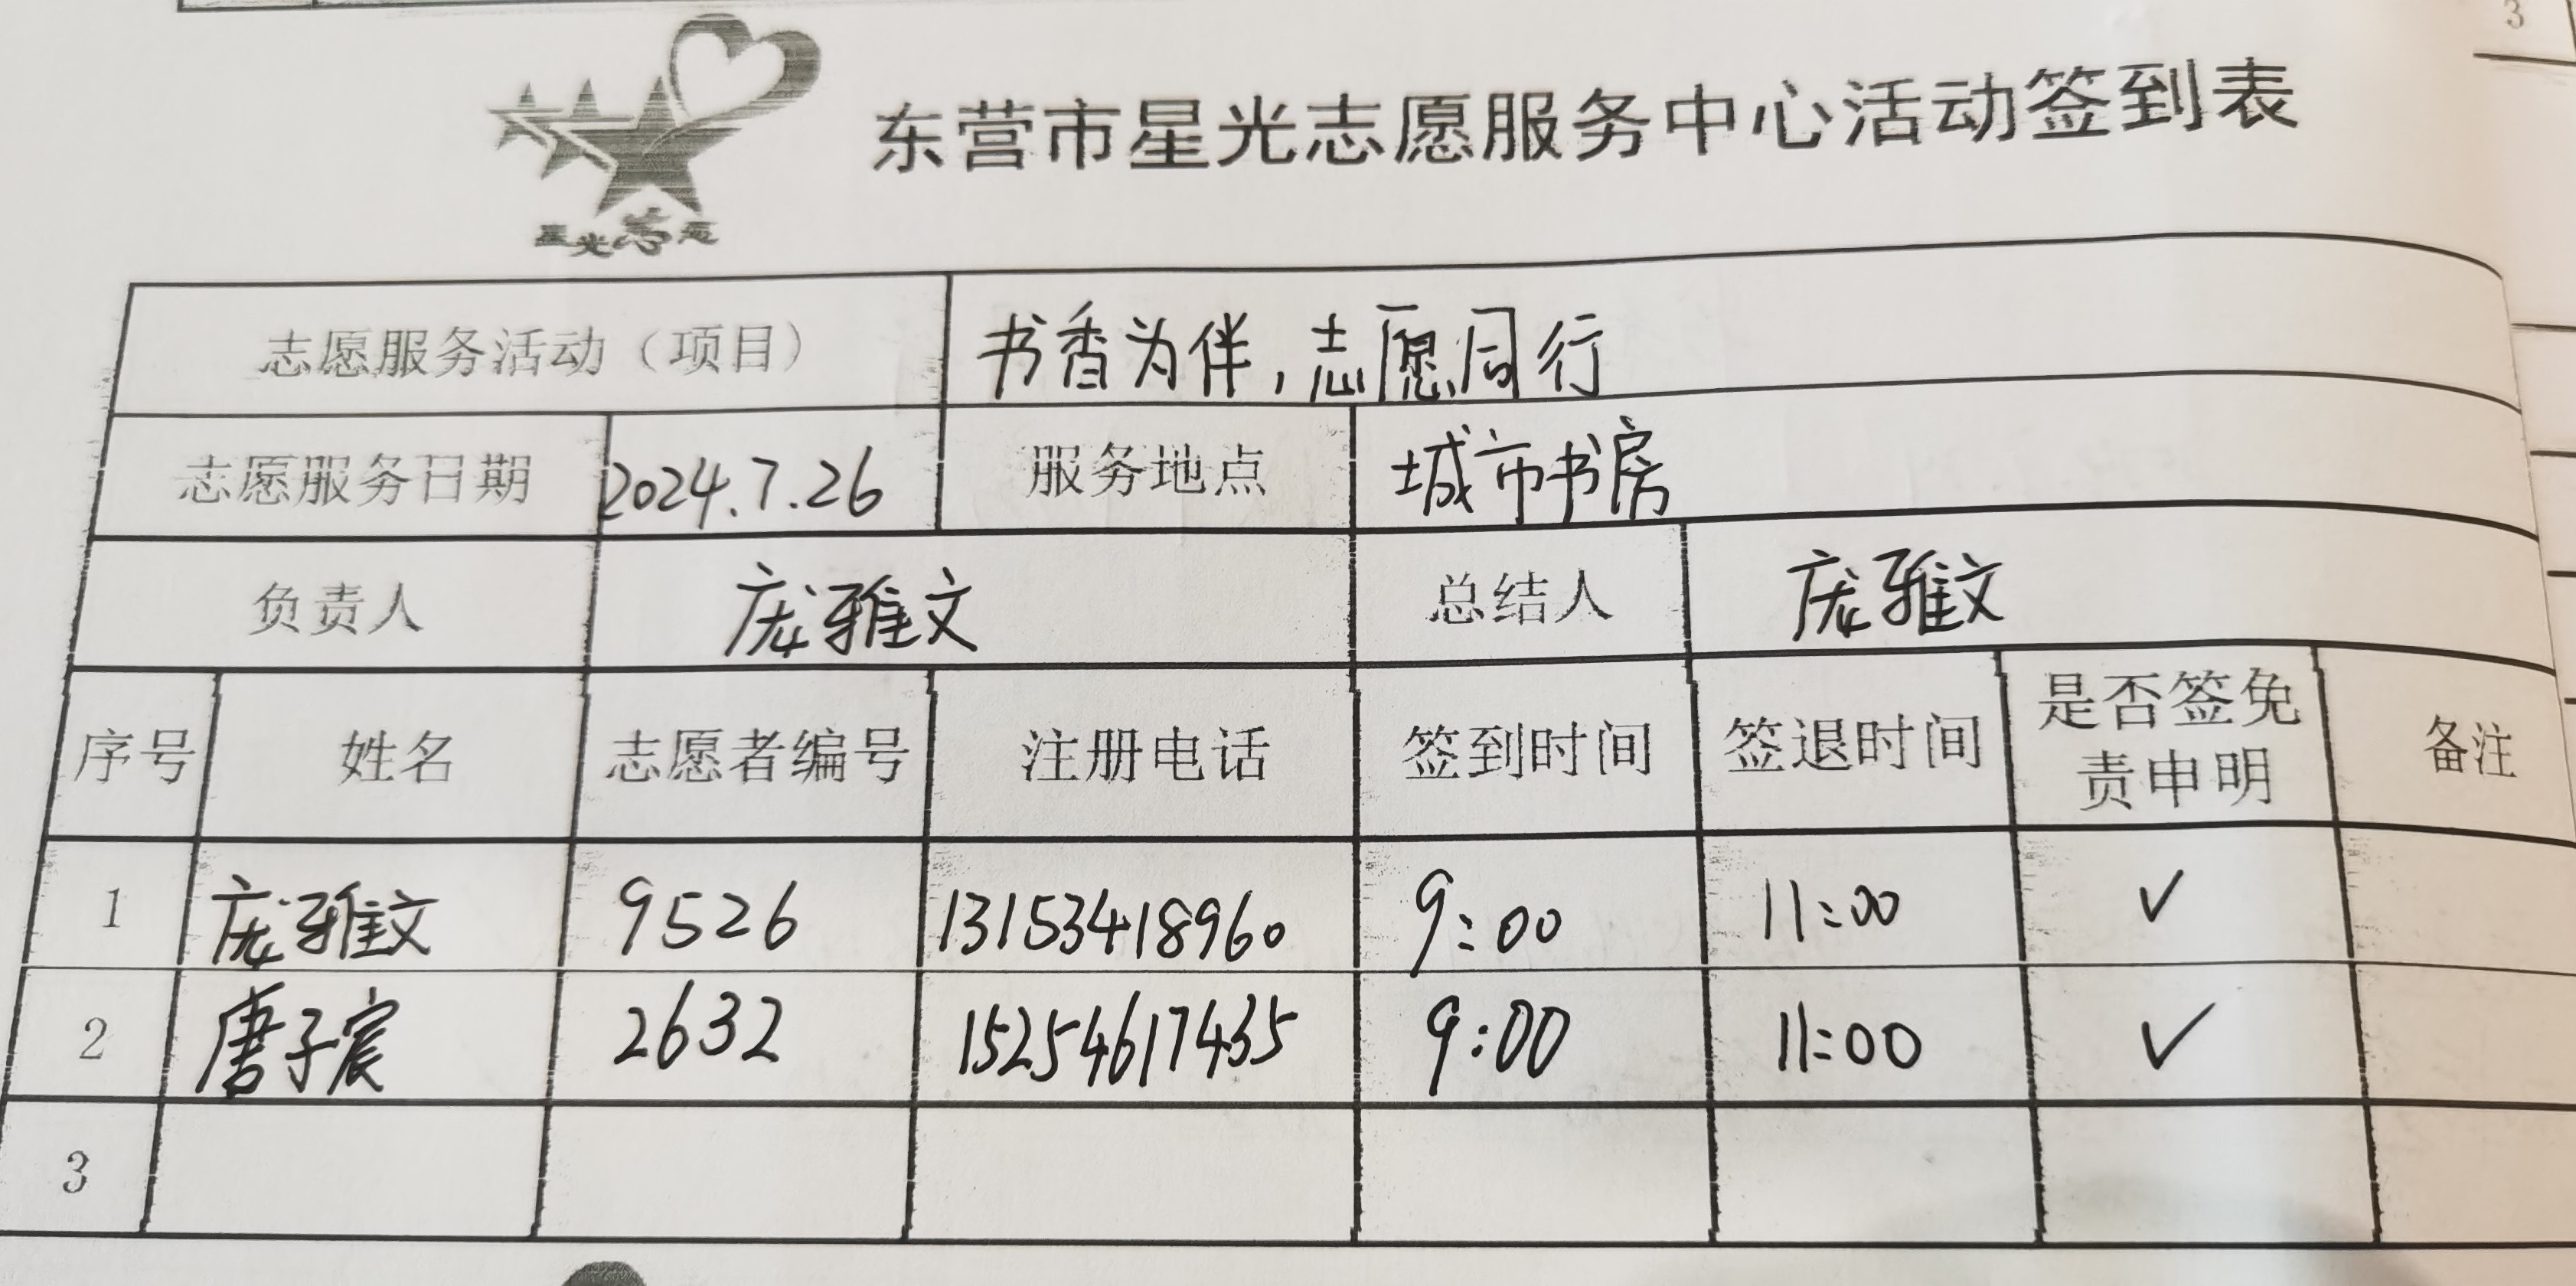 3
东营市星光志愿服务中心活动签到表
星光志愿
志愿服务活动（项目） 书香为伴，志愿同行
志愿服务日期 2024.7.26 服务地点 城市书房
负责人 庞雅文 总结人 庞雅文
序号 姓名 志愿者编号 注册电话 签到时间 签退时间 是否签免 备注
责申明
1 庞雅文 9526 13153418960 9:00 11:00 ✓
2 唐子宸 2632 15254617435 9:00 11:00 ✓
3